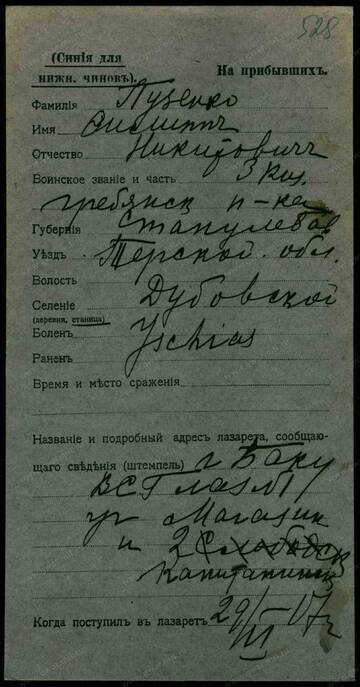 528
(Синія для
нижн. чиновъ).
На прибывшихъ.
Фамилія Пузенко
Имя
Отчество Никитовичъ
Воинское званіе и часть 3 Каз.
гребянск п-ка
Губернія
Уѣздъ Терской обл.
Волость
Селеніе Дубовской
(деревня, станица)
Боленъ Yschias
Раненъ
Время и мѣсто сраженія
Названіе и подробный адресъ лазарета, сообщаю-
щаго свѣдѣнія (штемпель) г Баку
ВСГ лаз №1
уг Магазин
и 2
Капитанинск
Когда поступилъ въ лазаретъ 29/III-17 г